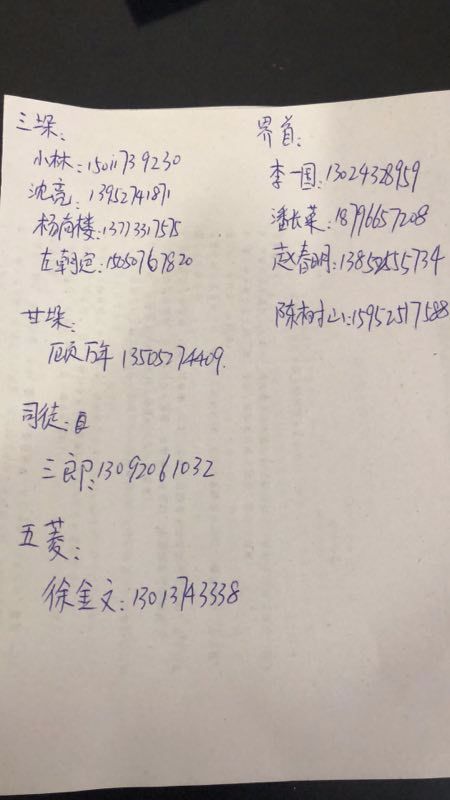 三垛：
小林：15011739230
沈亮：13952741871
杨尚楼：13773317575
左朝宽：15050767820
甘垛：
顾万年 13505274409.
司徒：
三郎：13092061032
五菱：
徐金文：13013743338
界首：
李一国：13024328959
潘长菜：18796657208
赵春明：13852555734
陈树山：15952517588